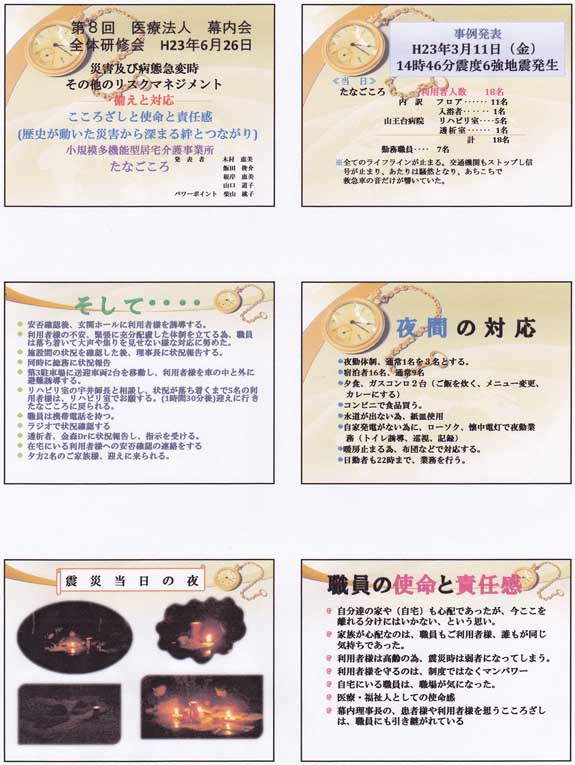 第８回　医療法人　幕内会
全体研修会　H23年6月26日
災害及び病態急変時
その他のリスクマネジメント
備えと対応
こころざしと使命と責任感
(歴史が動いた災害から深まる絆とつながり)
小規模多機能型居宅介護事業所
たなごころ
発　表　者　木村　恵美
飯田　俊介
根岸　恵美
山口　道子
パワーポイント　柴山　桃子
事例発表
H23年3月11日（金）
14時46分震度6強地震発生
≪当　日≫
たなごころ　利用者人数　18名
内　訳　フロア‥‥‥ 11名
入浴者‥‥‥ 1名
山王台病院　リハビリ室‥‥5名
透析室‥‥‥ 1名
計　18名
勤務職員‥‥　7名
※全てのライフラインが止まる。交通機関もストップし信
号が止まり、あたりは騒然となり、あちこちで
救急車の音だけが響いていた。
そして・・・・
安否確認後、玄関ホールに利用者様を誘導する。
利用者様の不安、緊張に充分配慮した体制を立てる為、職員
は落ち着いて大声や焦りを見せない様な対応に努めた。
施設間の状況を確認した後、理事長に状況報告する。
同時に総務に状況報告
第3駐車場に送迎車両2台を移動し、利用者様を車の中と外に
避難誘導する。
リハビリ室の宇井師長と相談し、状況が落ち着くまで5名の利
用者様は、リハビリ室でお願する。(1時間30分後)迎えに行き
たなごころに戻られる。
職員は携帯電話を持つ。
ラジオで状況確認する
透析者、金森Drに状況報告し、指示を受ける。
在宅にいる利用者様への安否確認の連絡をする
夕方2名のご家族様、迎えに来られる。
夜間の対応
夜勤体制、通常1名を３名とする。
宿泊者16名、通常9名
夕食、ガスコンロ２台（ご飯を炊く、メニュー変更、
カレーにする）
コンビニで食品買う。
水道が出ない為、紙皿使用
自家発電がない為に、ローソク、懐中電灯で夜勤業
務（トイレ誘導、巡視、記録）
暖房止まる為、布団などで対応する。
日勤者も22時まで、業務を行う。
震災当日の夜
職員の使命と責任感
自分達の家や（自宅）も心配であったが、今ここを
離れる分けにはいかない、という思い。
家族が心配なのは、職員もご利用者様、誰もが同じ
気持ちであった。
利用者様は高齢の為、震災時は弱者になってしまう。
利用者様を守るのは、制度ではなくマンパワー
自宅にいる職員は、職場が気になった。
医療・福祉人としての使命感
幕内理事長の、患者様や利用者様を思うこころざし
は、職員にも引き継がれている